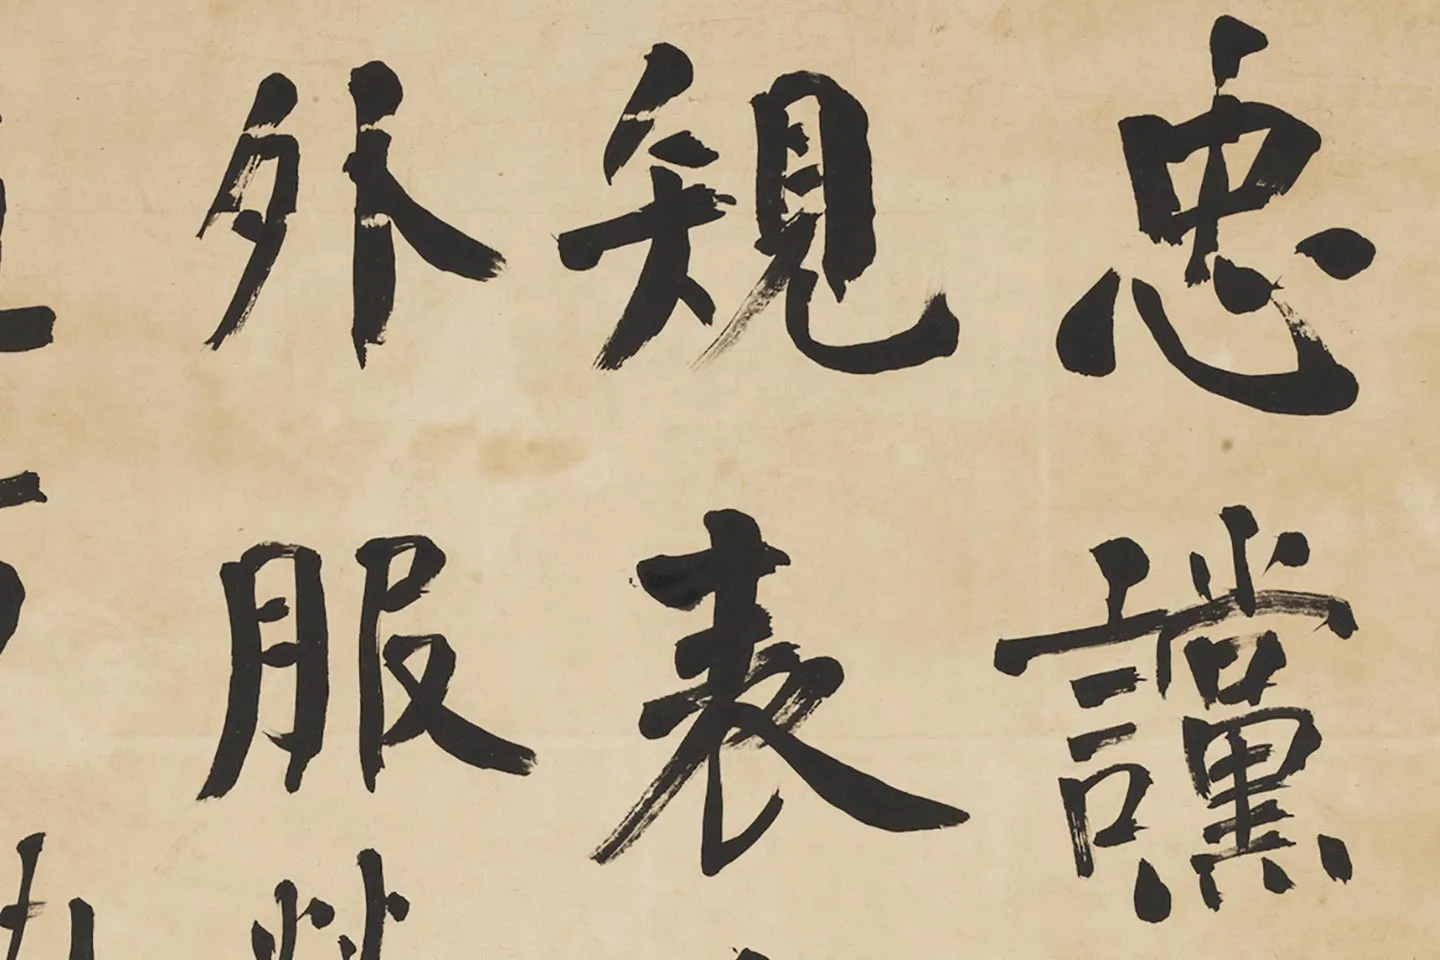 忠讜
規表
外服